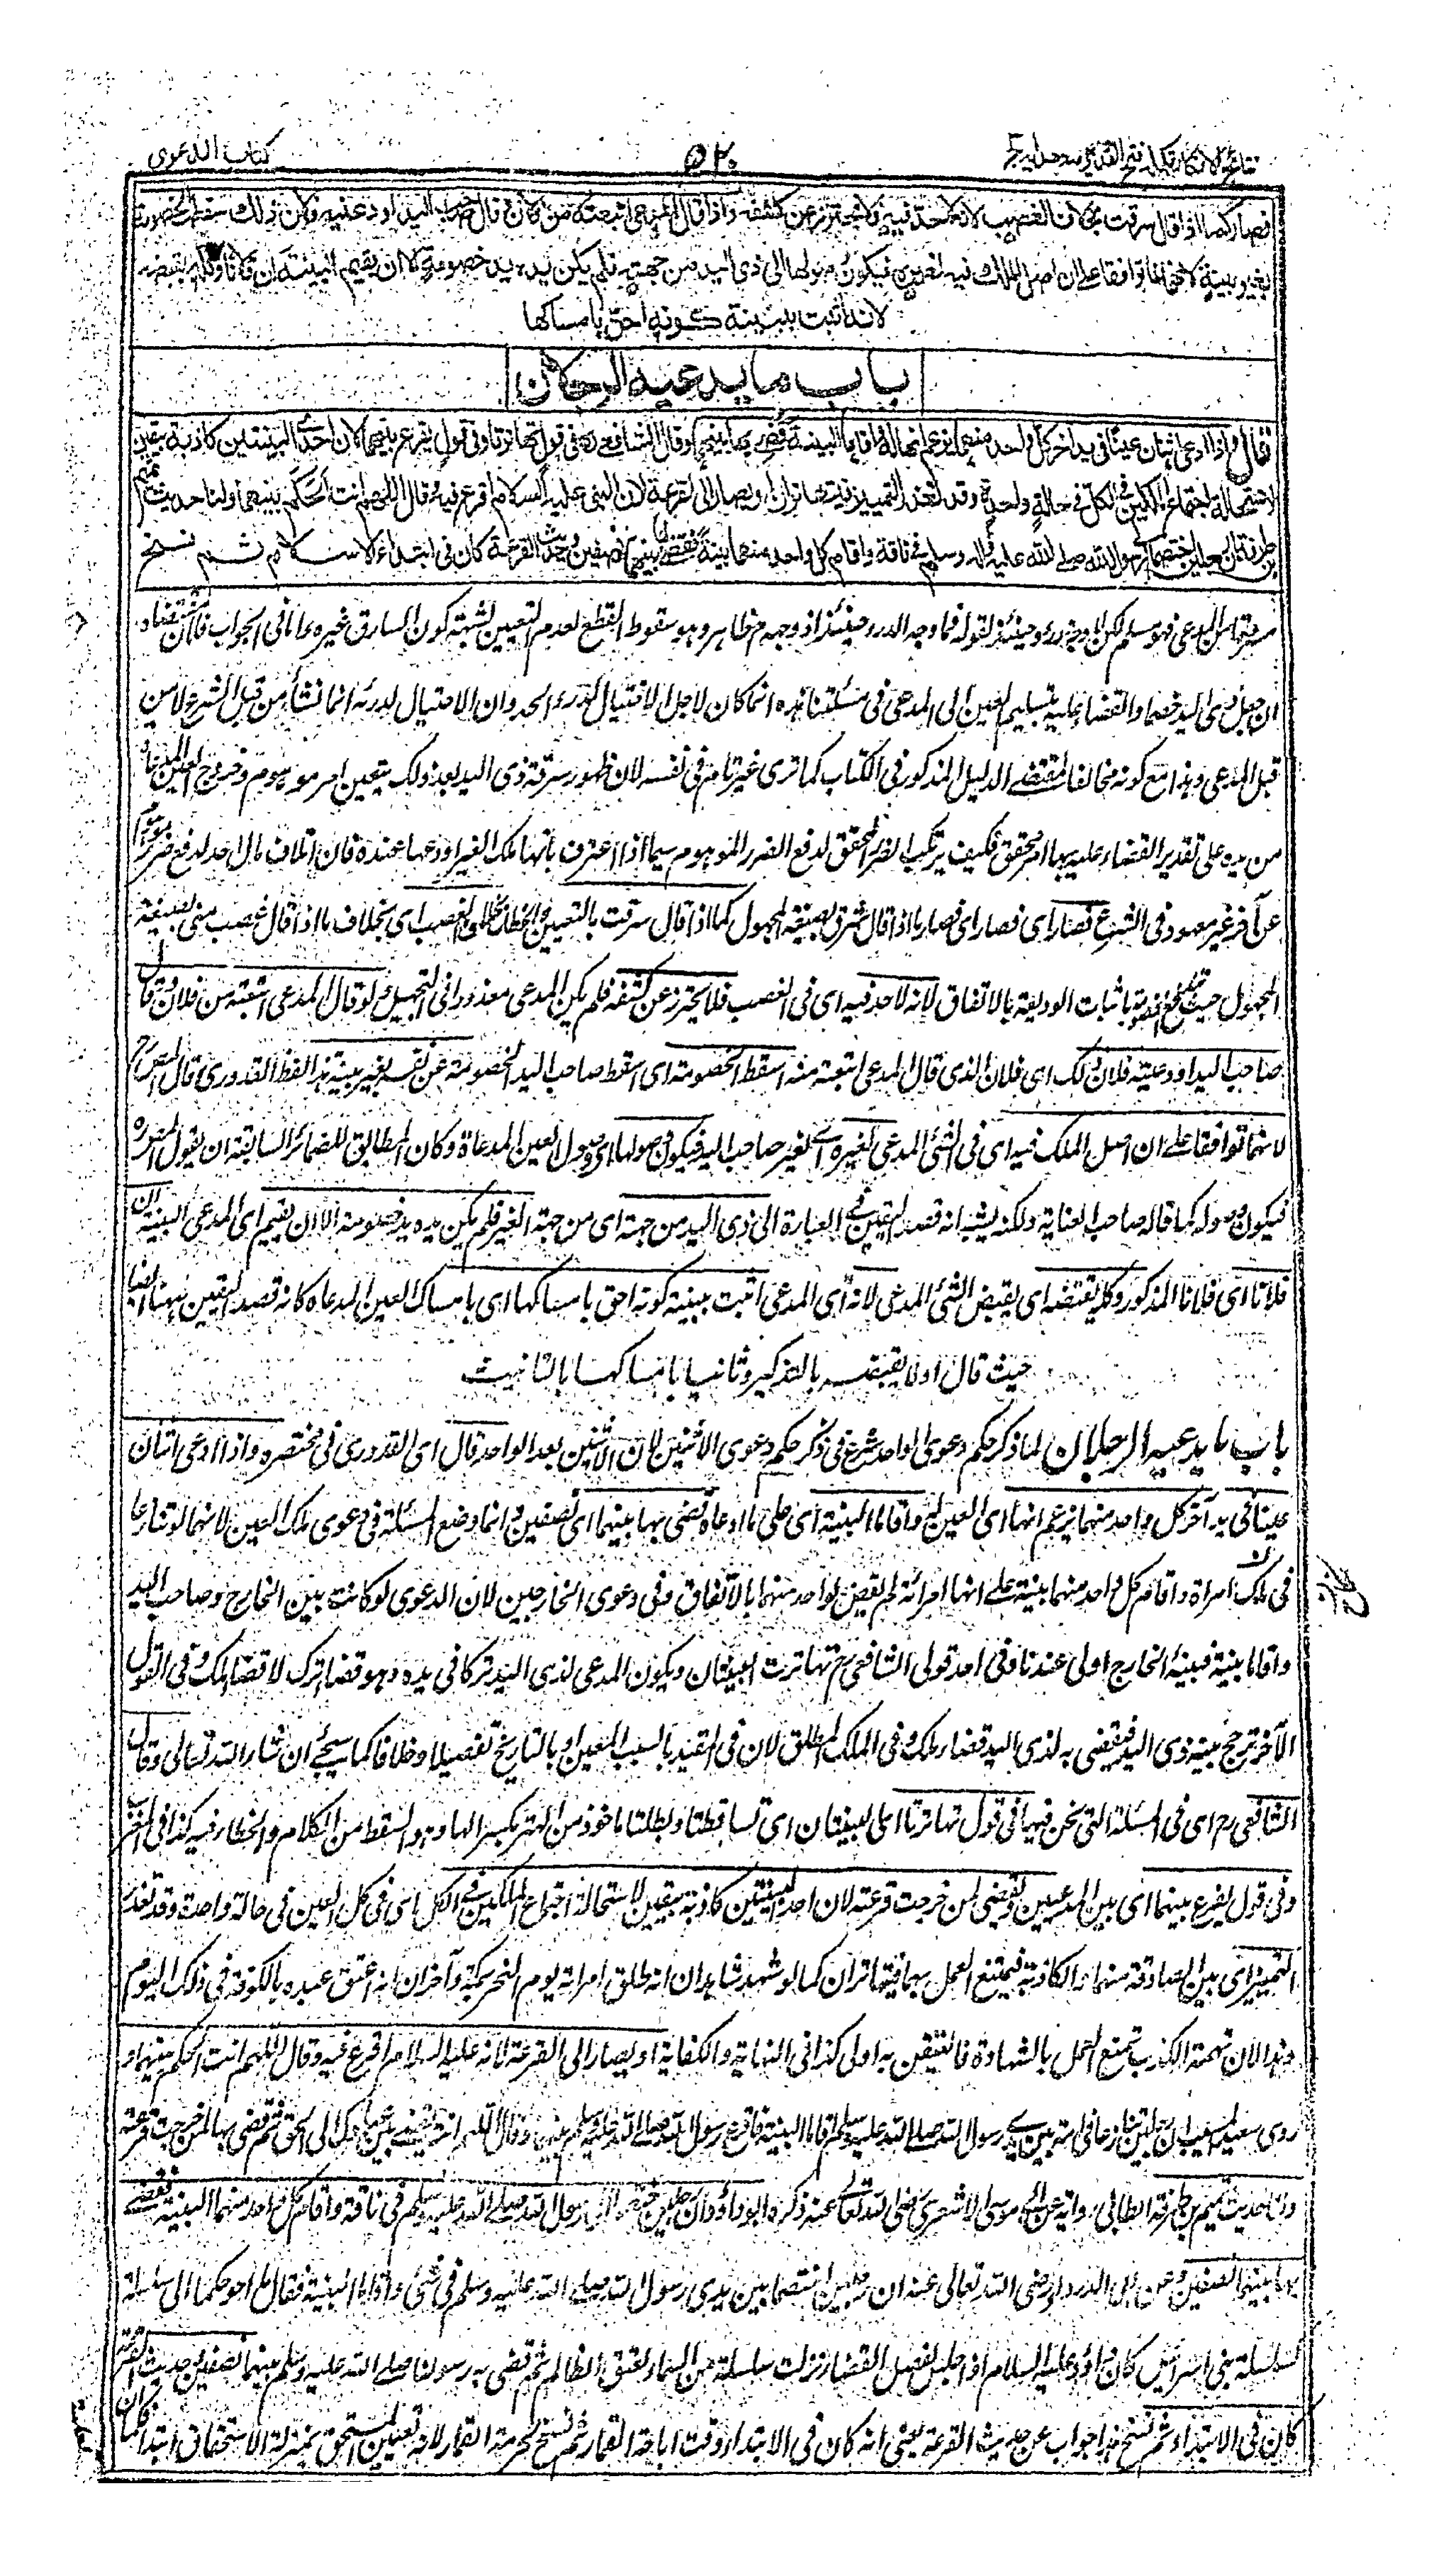 نتائج الافكار تكملة فتح القدير مع هداية ج
۵۲۰
كتاب الدعوى
فصار كما اذا قال سرقت بخلاف الغصب لانه لا حد فيه فلا يحترز عن كشفه واذا قال المدعى ابتعته من فلان وقال صاحب اليد اودعنيه فلان ذلك سقطت الخصومة
بغير بينة لانهما توافقا على ان اصل الملك فيه لغيره فيكون وصولها الى ذى اليد من جهته فلم يكن يده يد خصومة الا ان يقيم البينة ان فلانا وكله بقبضه
لانه اثبت ببينة كونه احق بامساكها
باب ما يدعيه الرجلان
قال واذا ادعى اثنان عينا فى يد اخر كل واحد منهما يزعم انها له واقاما البينة قضى بها بينهما وقال الشافعى رح فى قول تهاترتا وفى قول يقرع بينهما لان احدى البينتين كاذبة بيقين
لاستحالة اجتماع الملكين فى الكل فى حالة واحدة وقد تعذر التمييز فيتهاتران او يصار الى القرعة لان النبى عليه السلام اقرع فيه وقال اللهم انت الحكم بينهما ولنا حديث تميم
بن طرفة ان رجلين اختصما الى رسول الله صلى الله عليه واله وسلم فى ناقة واقام كل واحد منهما بينة فقضى بها بينهما نصفين وحديث القرعة كان فى ابتداء الاسلام ثم نسخ
سرقتها من المدعى فهو مسلم لكن لا وجه حينئذ لقوله فما وجه الدرء حينئذ اذ وجهه ظاهر وهو سقوط القطع لعدم التعيين لشبهة كون السارق غيره واما فى الجواب فلان مقتضاه
ان جعل ذى اليد خصما والقضاء عليه بتسليم العين الى المدعى فى مسئلتنا هذه انما كان لاجل الاحتيال لدرء الحد وان الاحتيال لدرئه انما نشأ من قبل الشرع لا من
قبل المدعى وهذا مع كونه مخالفا لمقتضى الدليل المذكور فى الكتاب كما ترى غير تام فى نفسه لان ظهور سرقة ذى اليد بعد ذلك بتعين امر موهوم وخروج العين المدعاة
من يده على تقدير القضاء عليه بها امر محقق فكيف يرتكب الضرر المحقق لدفع الضرر الموهوم سيما اذا اعترف بانها ملك الغير اودعها عنده فان اتلاف مال احد لدفع ضرر موهوم
عن آخر غير معهود فى الشرع فصار اى فصار ما اذا قال سرق بصيغة المجهول كما اذا قال سرقت بالتعيين والخطاب بخلاف الغصب اى بخلاف ما اذا قال غصب منى بصيغة
المجهول حيث تندفع الخصومة باثبات الوديعة بالاتفاق لانه لا حد فيه اى فى الغصب فلا يحترز عن كشفه فلم يكن المدعى معذورا فى التجهيل ولو قال المدعى ابتعته من فلان وقال
صاحب اليد اودعنيه فلان ذلك اى فلان الذى قال المدعى ابتعته منه اسقط الخصومة اى اسقط صاحب اليد الخصومة عن نفسه بغير بينة هذا لفظ القدورى قال المصنف رح
لانهما توافقا على ان اصل الملك فيه اى فى الشئ المدعى لغيره اى لغير صاحب اليد فيكون وصولها اى وصول العين المدعاة وكان المطابق للضمائر السابقة ان يقول المصنف
فيكون وصوله كما قاله صاحب العناية ولكنه يشبه انه قصد التفنن فى العبارة الى ذى اليد من جهته اى من جهة الغير فلم يكن يده يد خصومة الا ان يقيم اى المدعى البينة ان
فلانا اى فلانا المذكور وكله بقبضه اى بقبض الشئ المدعى لانه اى المدعى اثبت ببينة كونه احق بامساكها اى بامساك العين المدعاة كانه قصد التفنن ههنا ايضا
حيث قال اولا بقبضه بالتذكير وثانيا بامساكها بالتانيث
باب ما يدعيه الرجلان لما ذكر حكم دعوى الواحد شرع فى ذكر حكم دعوى الاثنين لان الاثنين بعد الواحد قال اى القدورى فى مختصره واذا ادعى اثنان
عينا فى يد آخر كل واحد منهما يزعم انها اى العين له واقاما البينة اى على ما ادعاه قضى بها بينهما اى نصفين وانما وضع المسئلة فى دعوى ملك العين لانهما لو تنازعا
فى نكاح امراة واقام كل واحد منهما بينة على انها امرأته لم يقض لواحد منهما بالاتفاق وفى دعوى الخارجين لان الدعوى لو كانت بين الخارج وصاحب اليد
واقاما بينة فبينة الخارج اولى عندنا وفى احد قولى الشافعى رح تهاترت البينتان ويكون المدعى لذى اليد تركا فى يده وهو قضاء ترك لا قضاء ملك وفى القول
الآخر ترجح بينة ذى اليد فيقضى به لذى اليد قضاء ملك وفى الملك المطلق لان فى المقيد بالسبب المعين او بالتاريخ تفصيلا وخلافا كما سيجئ ان شاء الله تعالى وقال
الشافعى رح اى فى المسئلة التى نحن فيها فى قول تهاترتا اى البينتان اى تساقطتا وبطلتا ماخوذ من الهتر بكسر الهاء وهو السقط من الكلام والخطاء فيه كذا فى المغرب
وفى قول يقرع بينهما اى بين المدعيين ويقضى لمن خرجت قرعته لان احدى البينتين كاذبة بيقين لاستحالة اجتماع الملكين فى الكل اى فى كل العين فى حالة واحدة وقد تعذر
التمييز اى بين الصادقة منهما والكاذبة فيمتنع العمل بهما فيتهاتران كما لو شهد شاهدان انه طلق امراته يوم النحر بمكة وآخران انه اعتق عبده بالكوفة فى ذلك اليوم
وهذا لان تهمة الكذب تمنع العمل بالشهادة فالتيقن به اولى كذا فى النهاية والكفاية او يصار الى القرعة لانه عليه السلام اقرع فيه وقال اللهم انت الحكم بينهما و
روى سعيد بن المسيب ان رجلين تنازعا فى امة بين يدى رسول الله صلى الله عليه وسلم واقاما البينة فاقرع رسول الله صلى الله عليه وسلم بينهما وقال اللهم انت تقضى بين عبادك بالحق ثم قضى بها لمن خرجت قرعته
ولنا حديث تميم بن طرفة الطائى رواية عن ابى موسى الاشعرى رضى الله تعالى عنه ذكره ابو داؤد ان رجلين اختصما الى رسول الله صلى الله عليه وسلم فى ناقة واقام كل واحد منهما البينة فقضى
بها بينهما نصفين وعن ابى الدرداء رضى الله تعالى عنه ان رجلين اختصما بين يدى رسول الله صلى الله عليه وسلم فى شئ واقاما البينة فقال ما احوجكما الى سلسلة
كسلسلة بنى اسرائيل كان داؤد عليه السلام اذا جلس لفصل القضاء نزلت سلسلة من السماء بعنق الظالم ثم قضى به رسولنا صلى الله عليه وسلم بينهما نصفين وحديث القرعة
كان فى الابتداء ثم نسخ هذا جواب عن حديث القرعة يعنى انه كان فى الابتداء وقت اباحة القمار ثم نسخ بحرمة القمار لانه تعيين المستحق بمنزلة الاستحقاق ابتداء فكما ان